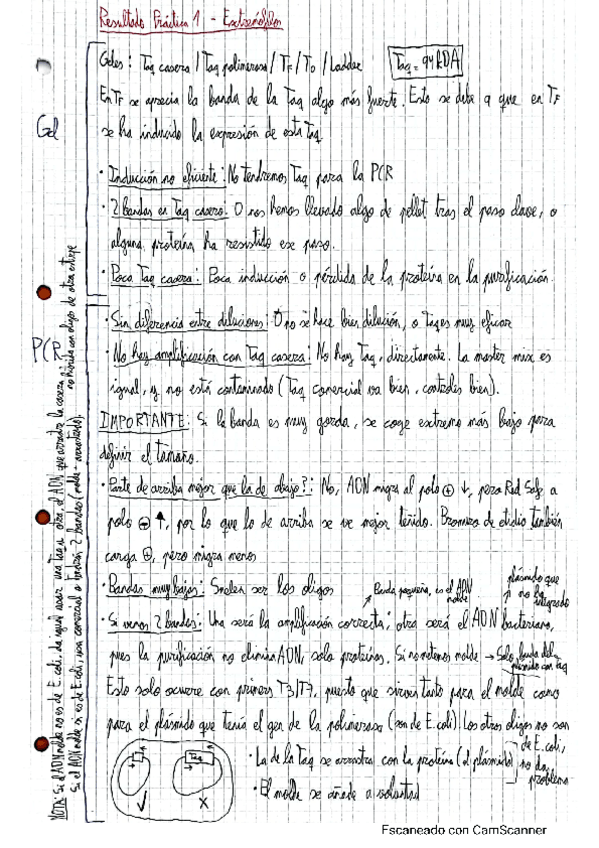 Resultado Práctica 1 - Extremófilos
Gel
Geles: Taq casera / Taq polimerasa / TF / T0 / Ladder
Taq = 94 KDA
En TF se aprecia la banda de la Taq algo más fuerte. Esto se debe a que en TF
se ha inducido la expresión de esta Taq.
· Inducción no eficiente: No tendremos Taq para la PCR
· 2 bandas en Taq casera: O nos hemos llevado algo de pellet tras el paso clave, o
alguna proteína ha resistido ese paso.
· Poca Taq casera: Poca inducción o pérdida de la proteína en la purificación.
PCR
· Sin diferencia entre diluciones: O no se hace bien dilución, o Taq es muy eficaz
· No hay amplificación con Taq casera: No hay Taq, directamente. La master mix es
igual, y no está contaminado (Taq comercial va bien, controles bien).
IMPORTANTE: Si la banda es muy gorda, se coge extremo más bajo para
definir el tamaño.
· Parte de arriba mejor que la de abajo?: No, ADN migra al polo ⊕ ↓, pero Red Safe a
polo ⊖ ↑, por lo que lo de arriba se ve mejor teñido. Bromuro de etidio también
carga ⊕, pero migra menos
· Bandas muy bajas: Suelen ser los oligos
Banda pequeña, es el ADN
molde
plásmido que
no ha
integrado
· Si vemos 2 bandas: Una será la amplificación correcta; otra será el ADN bacteriano,
pues la purificación no elimina ADN, solo proteínas. Si no metemos molde → Solo banda del
plásmido con taq
Esto solo ocurre con primers T3/T7, puesto que sirven tanto para el molde como
para el plásmido que tenía el gen de la polimerasa (son de E. coli). Los otros oligos no son
de E. coli,
no da
problema
· La de la Taq se arrastra con la proteína (el plásmido)
· El molde se añade a voluntad
Taq
✓
X
NOTA: Si el ADN molde no es de E. coli, da igual usar una Taq u otra, el ADN que arrastra la casera
no hibrida con oligo de otra estirpe
Si el ADN molde sí es de E. coli, usa comercial o tendrás 2 bandas (molde + arrastrado).
Escaneado con CamScanner